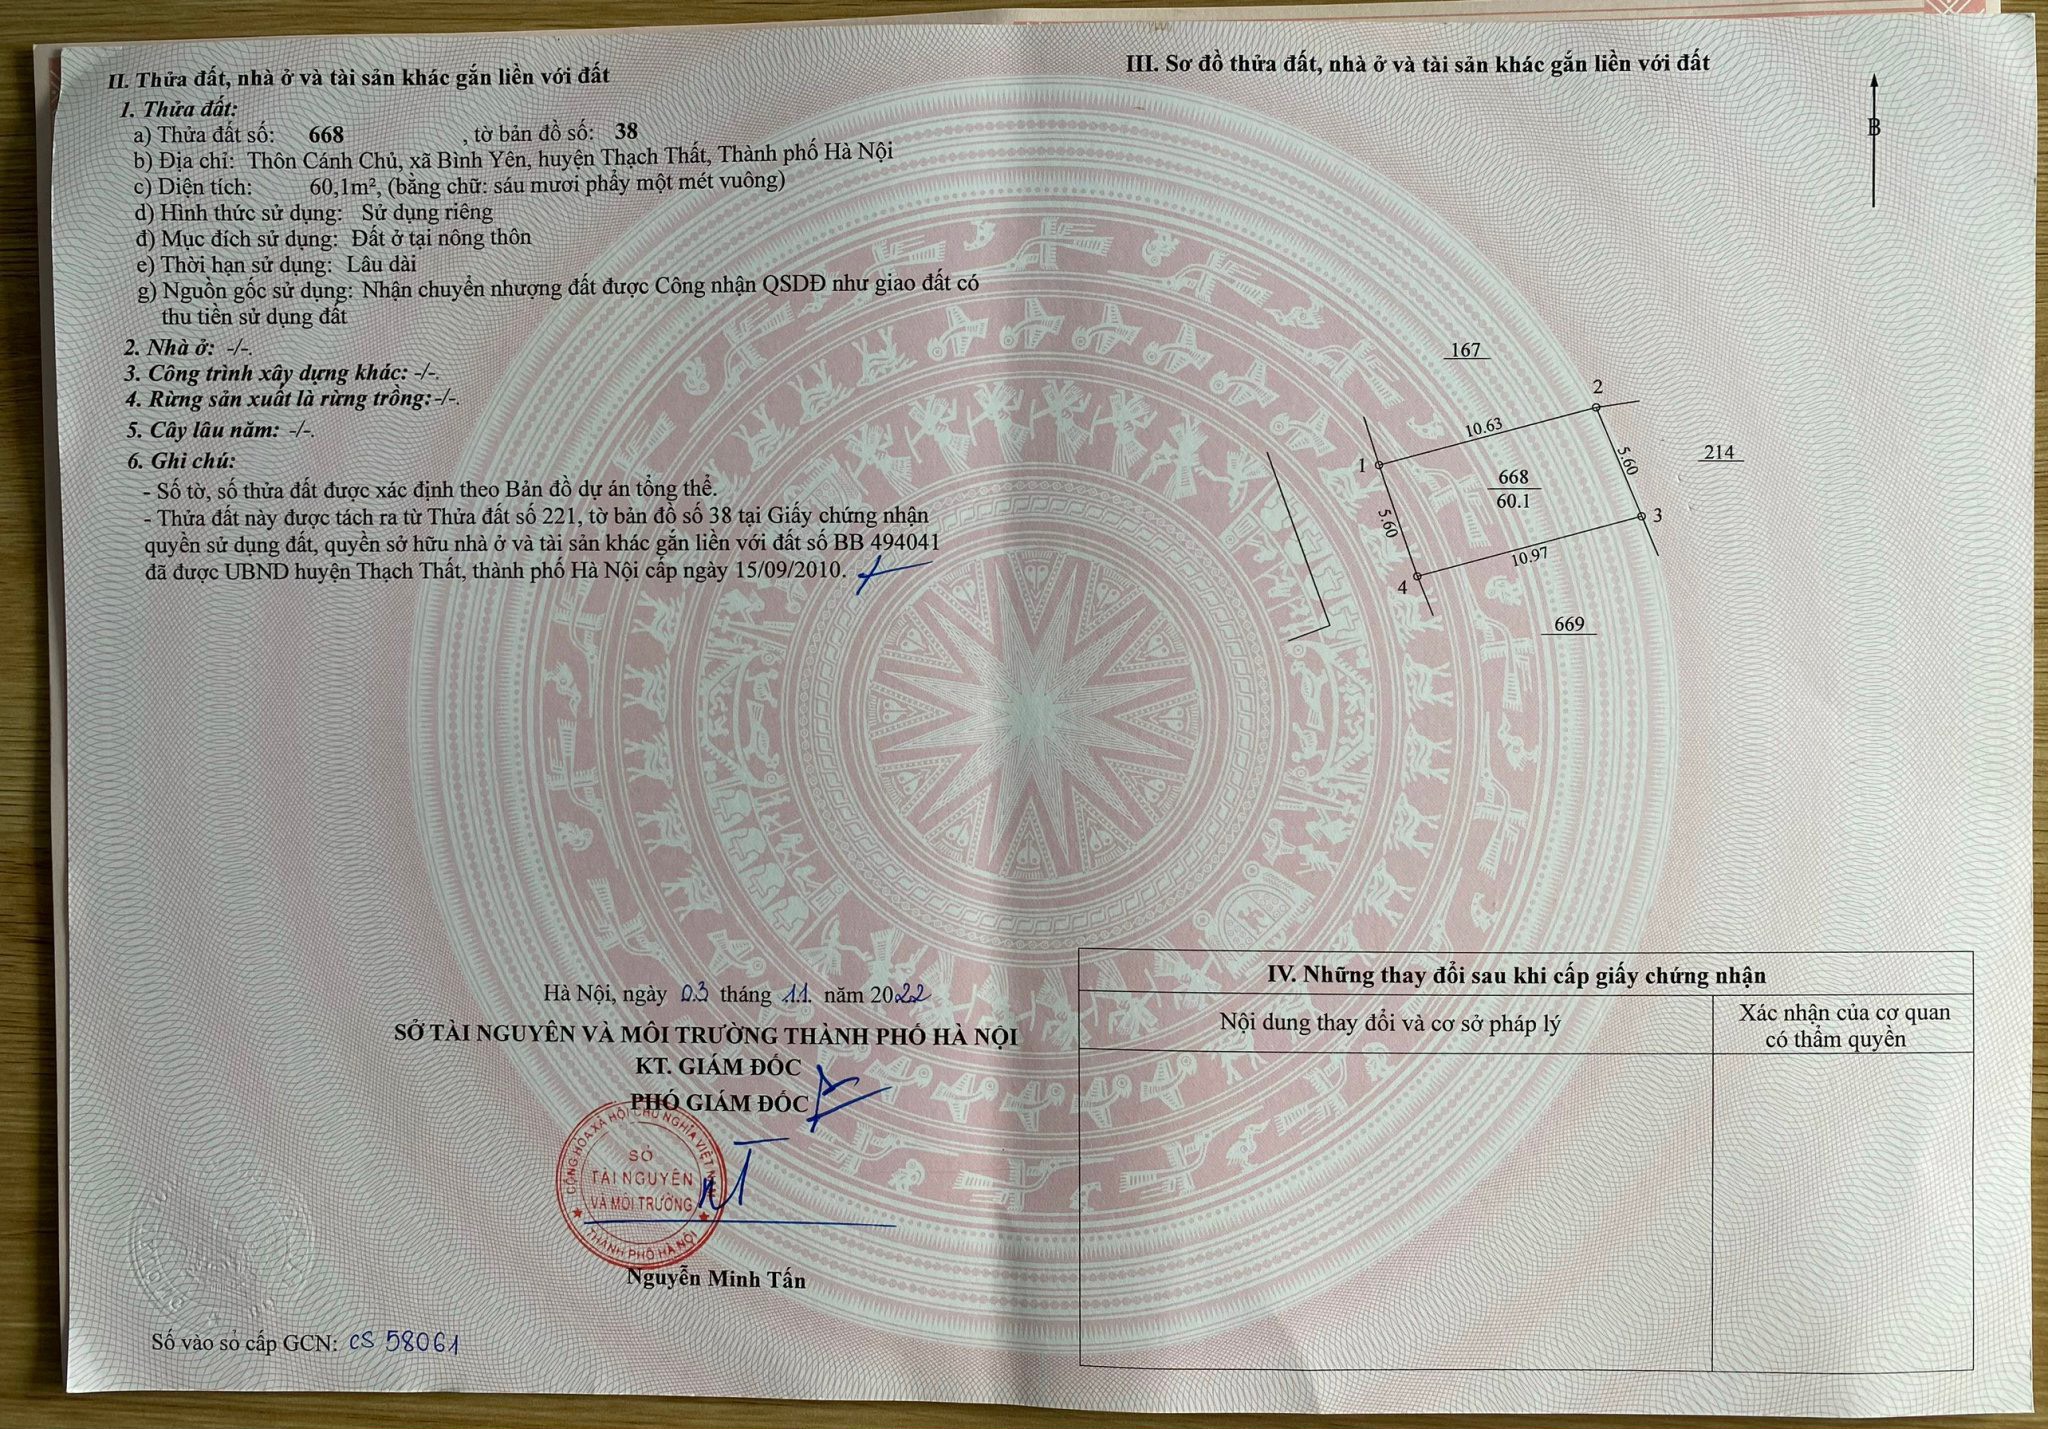 II. Thửa đất, nhà ở và tài sản khác gắn liền với đất
1. Thửa đất:
a) Thửa đất số: 668 , tờ bản đồ số: 38
b) Địa chỉ: Thôn Cánh Chủ, xã Bình Yên, huyện Thạch Thất, Thành phố Hà Nội
c) Diện tích: 60,1m², (bằng chữ: sáu mươi phẩy một mét vuông)
d) Hình thức sử dụng: Sử dụng riêng
đ) Mục đích sử dụng: Đất ở tại nông thôn
e) Thời hạn sử dụng: Lâu dài
g) Nguồn gốc sử dụng: Nhận chuyển nhượng đất được Công nhận QSDĐ như giao đất có
thu tiền sử dụng đất
2. Nhà ở: -/-.
3. Công trình xây dựng khác: -/-.
4. Rừng sản xuất là rừng trồng:-/-.
5. Cây lâu năm: -/-.
6. Ghi chú:
- Số tờ, số thửa đất được xác định theo Bản đồ dự án tổng thể.
- Thửa đất này được tách ra từ Thửa đất số 221, tờ bản đồ số 38 tại Giấy chứng nhận
quyền sử dụng đất, quyền sở hữu nhà ở và tài sản khác gắn liền với đất số BB 494041
đã được UBND huyện Thạch Thất, thành phố Hà Nội cấp ngày 15/09/2010.
Hà Nội, ngày 03 tháng 11 năm 2022
SỞ TÀI NGUYÊN VÀ MÔI TRƯỜNG THÀNH PHỐ HÀ NỘI
KT. GIÁM ĐỐC
PHÓ GIÁM ĐỐC
CỘNG HÒA XÃ HỘI CHỦ NGHĨA VIỆT NAM
SỞ
TÀI NGUYÊN
VÀ MÔI TRƯỜNG
THÀNH PHỐ HÀ NỘI
Nguyễn Minh Tấn
Số vào sổ cấp GCN: CS 58061
III. Sơ đồ thửa đất, nhà ở và tài sản khác gắn liền với đất
B
167
2
10.63
1
5.60
214
668
60.1
5.60
3
10.97
4
669
IV. Những thay đổi sau khi cấp giấy chứng nhận
Nội dung thay đổi và cơ sở pháp lý
Xác nhận của cơ quan
có thẩm quyền